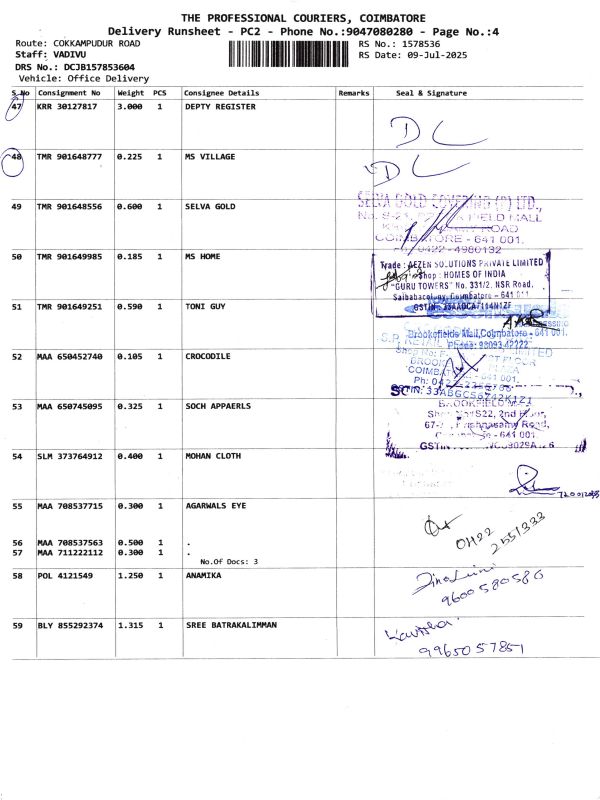 THE PROFESSIONAL COURIERS, COIMBATORE
Delivery Runsheet - PC2 - Phone No.:9047080280 - Page No.:4
Route: COKKAMPUDUR ROAD
RS No.: 1578536
Staff: VADIVU
RS Date: 09-Jul-2025
DRS No.: DCJB157853604
Vehicle: Office Delivery
S.No Consignment No Weight PCS Consignee Details Remarks Seal & Signature
47 KRR 30127817 3.000 1 DEPTY REGISTER
DC
48 TMR 901648777 0.225 1 MS VILLAGE
DC
49 TMR 901648556 0.600 1 SELVA GOLD
SELVA GOLD COVERING (P) LTD.,
FIELD MALL
ROAD
COIMBATORE - 641 001.
0422-4980132
50 TMR 901649985 0.185 1 MS HOME
Trade : AEZEN SOLUTIONS PRIVATE LIMITED
Shop : HOMES OF INDIA
"GURU TOWERS" No. 331/2, NSR Road,
Saibabacolony, Coimbatore - 641 011
51 TMR 901649251 0.590 1 TONI GUY
Brookefields Mall, Coimbatore - 641 001.
Phone: 98093 42222
52 MAA 650452740 0.105 1 CROCODILE
S.P. RETAIL LIMITED
"COIMBATORE 641 001.
GSTIN: 33ABGCS6742K1Z1
53 MAA 650745095 0.325 1 SOCH APPAERLS
BROOKFIELD MALL
Shop No S22, 2nd Floor,
Krishnasamy Road,
641 001
GSTIN
54 SLM 373764912 0.400 1 MOHAN CLOTH
55 MAA 708537715 0.300 1 AGARWALS EYE
0422
2551333
56 MAA 708537563 0.500 1 .
57 MAA 711222112 0.300 1 .
No.Of Docs: 3
58 POL 4121549 1.250 1 ANAMIKA
9600580580
59 BLY 855292374 1.315 1 SREE BATRAKALIMMAN
9965057851